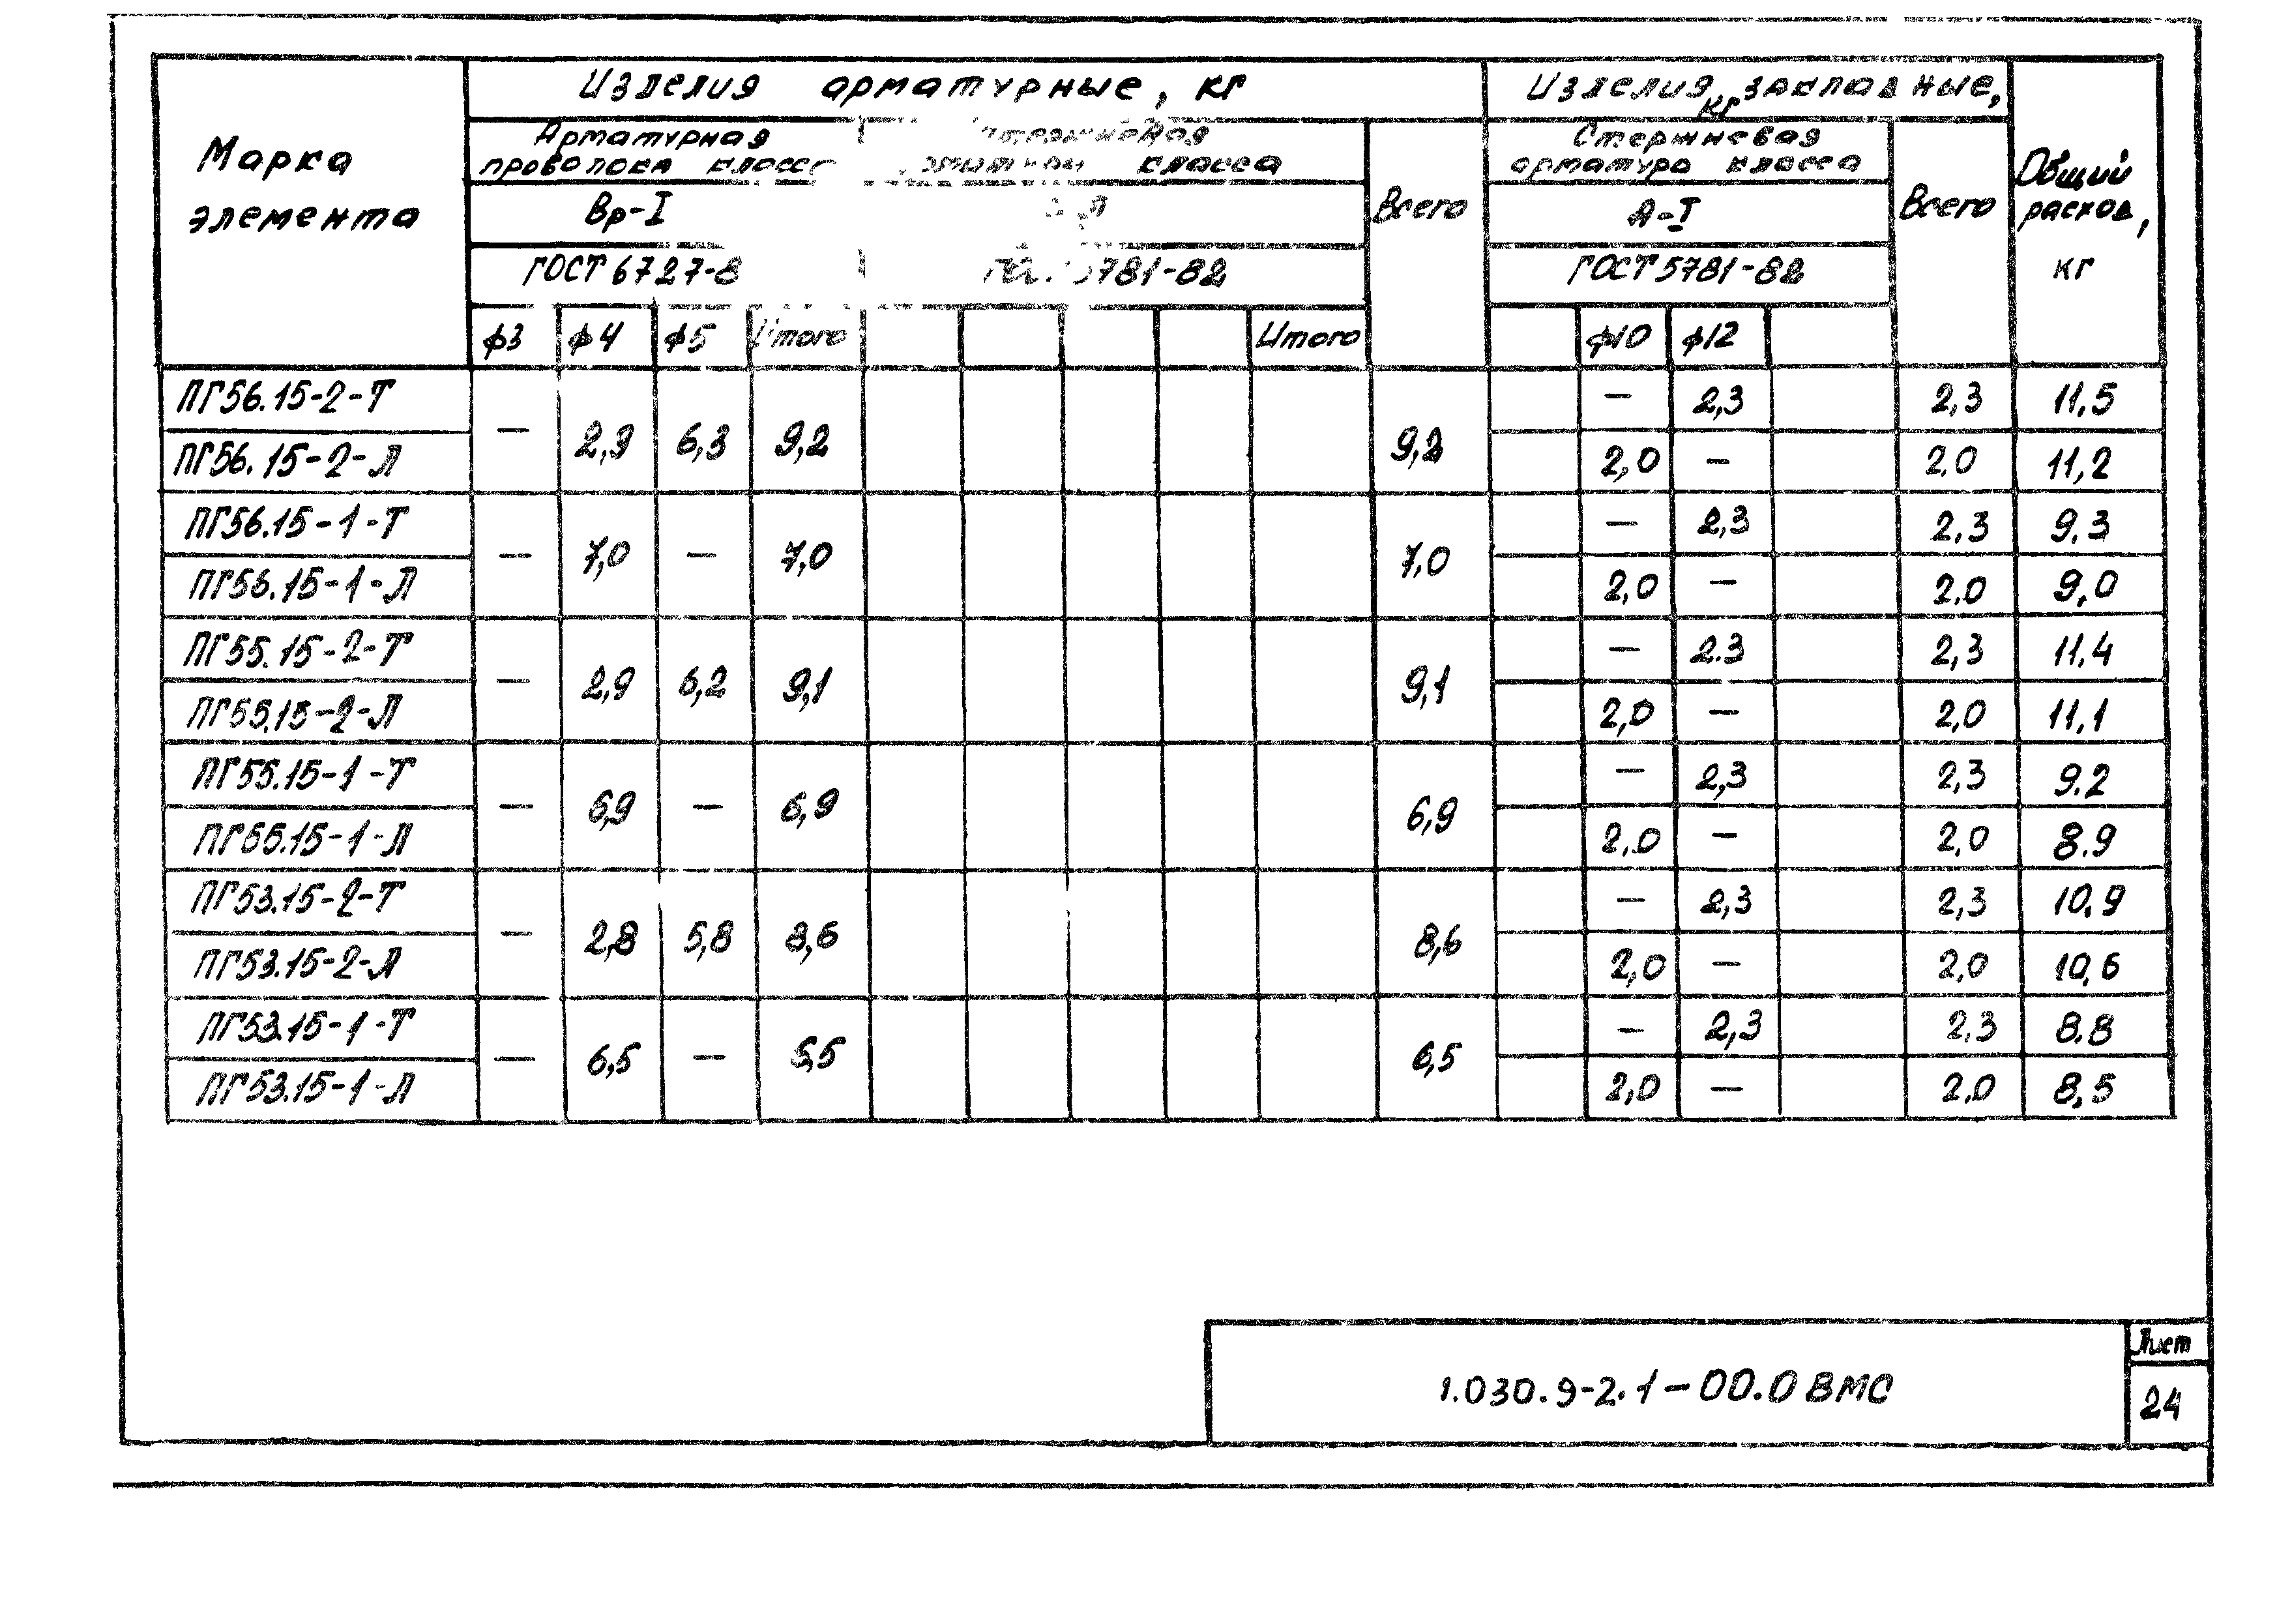 Марка
элемента
Изделия арматурные, кг
Изделия закладные,
кг
Общий
расход,
кг
Арматурная
проволока класса
класса
Всего
Стержневая
арматура класса
Всего
Вр-I
А-I
ГОСТ 6727-8
5781-82
ГОСТ 5781-82
ф3 ф4 ф5 Итого Итого ф10 ф12
ПГ56.15-2-Т — 2,3 2,3 11,5
— 2,9 6,3 9,2 9,2
ПГ56.15-2-Л 2,0 — 2,0 11,2
ПГ56.15-1-Т — 2,3 2,3 9.3
— 7,0 — 7,0 7,0
ПГ56.15-1-Л 2,0 — 2.0 9,0
ПГ55.15-2-Т — 2.3 2,3 11,4
— 2,9 6,2 9,1 9,1
ПГ55.15-2-Л 2,0 — 2,0 11,1
ПГ55.15-1-Т — 2,3 2,3 9.2
— 6,9 — 6,9 6,9
ПГ55.15-1-Л 2,0 — 2,0 8.9
ПГ53.15-2-Т — 2,3 2,3 10,9
— 2,8 5,8 8,6 8,6
ПГ53.15-2-Л 2,0 — 2,0 10,6
ПГ53.15-1-Т — 2,3 2,3 8.8
— 6,5 — 6,5 6,5
ПГ53.15-1-Л 2,0 — 2.0 8,5
1.030.9-2.1-00.0 ВМС
Лист
24